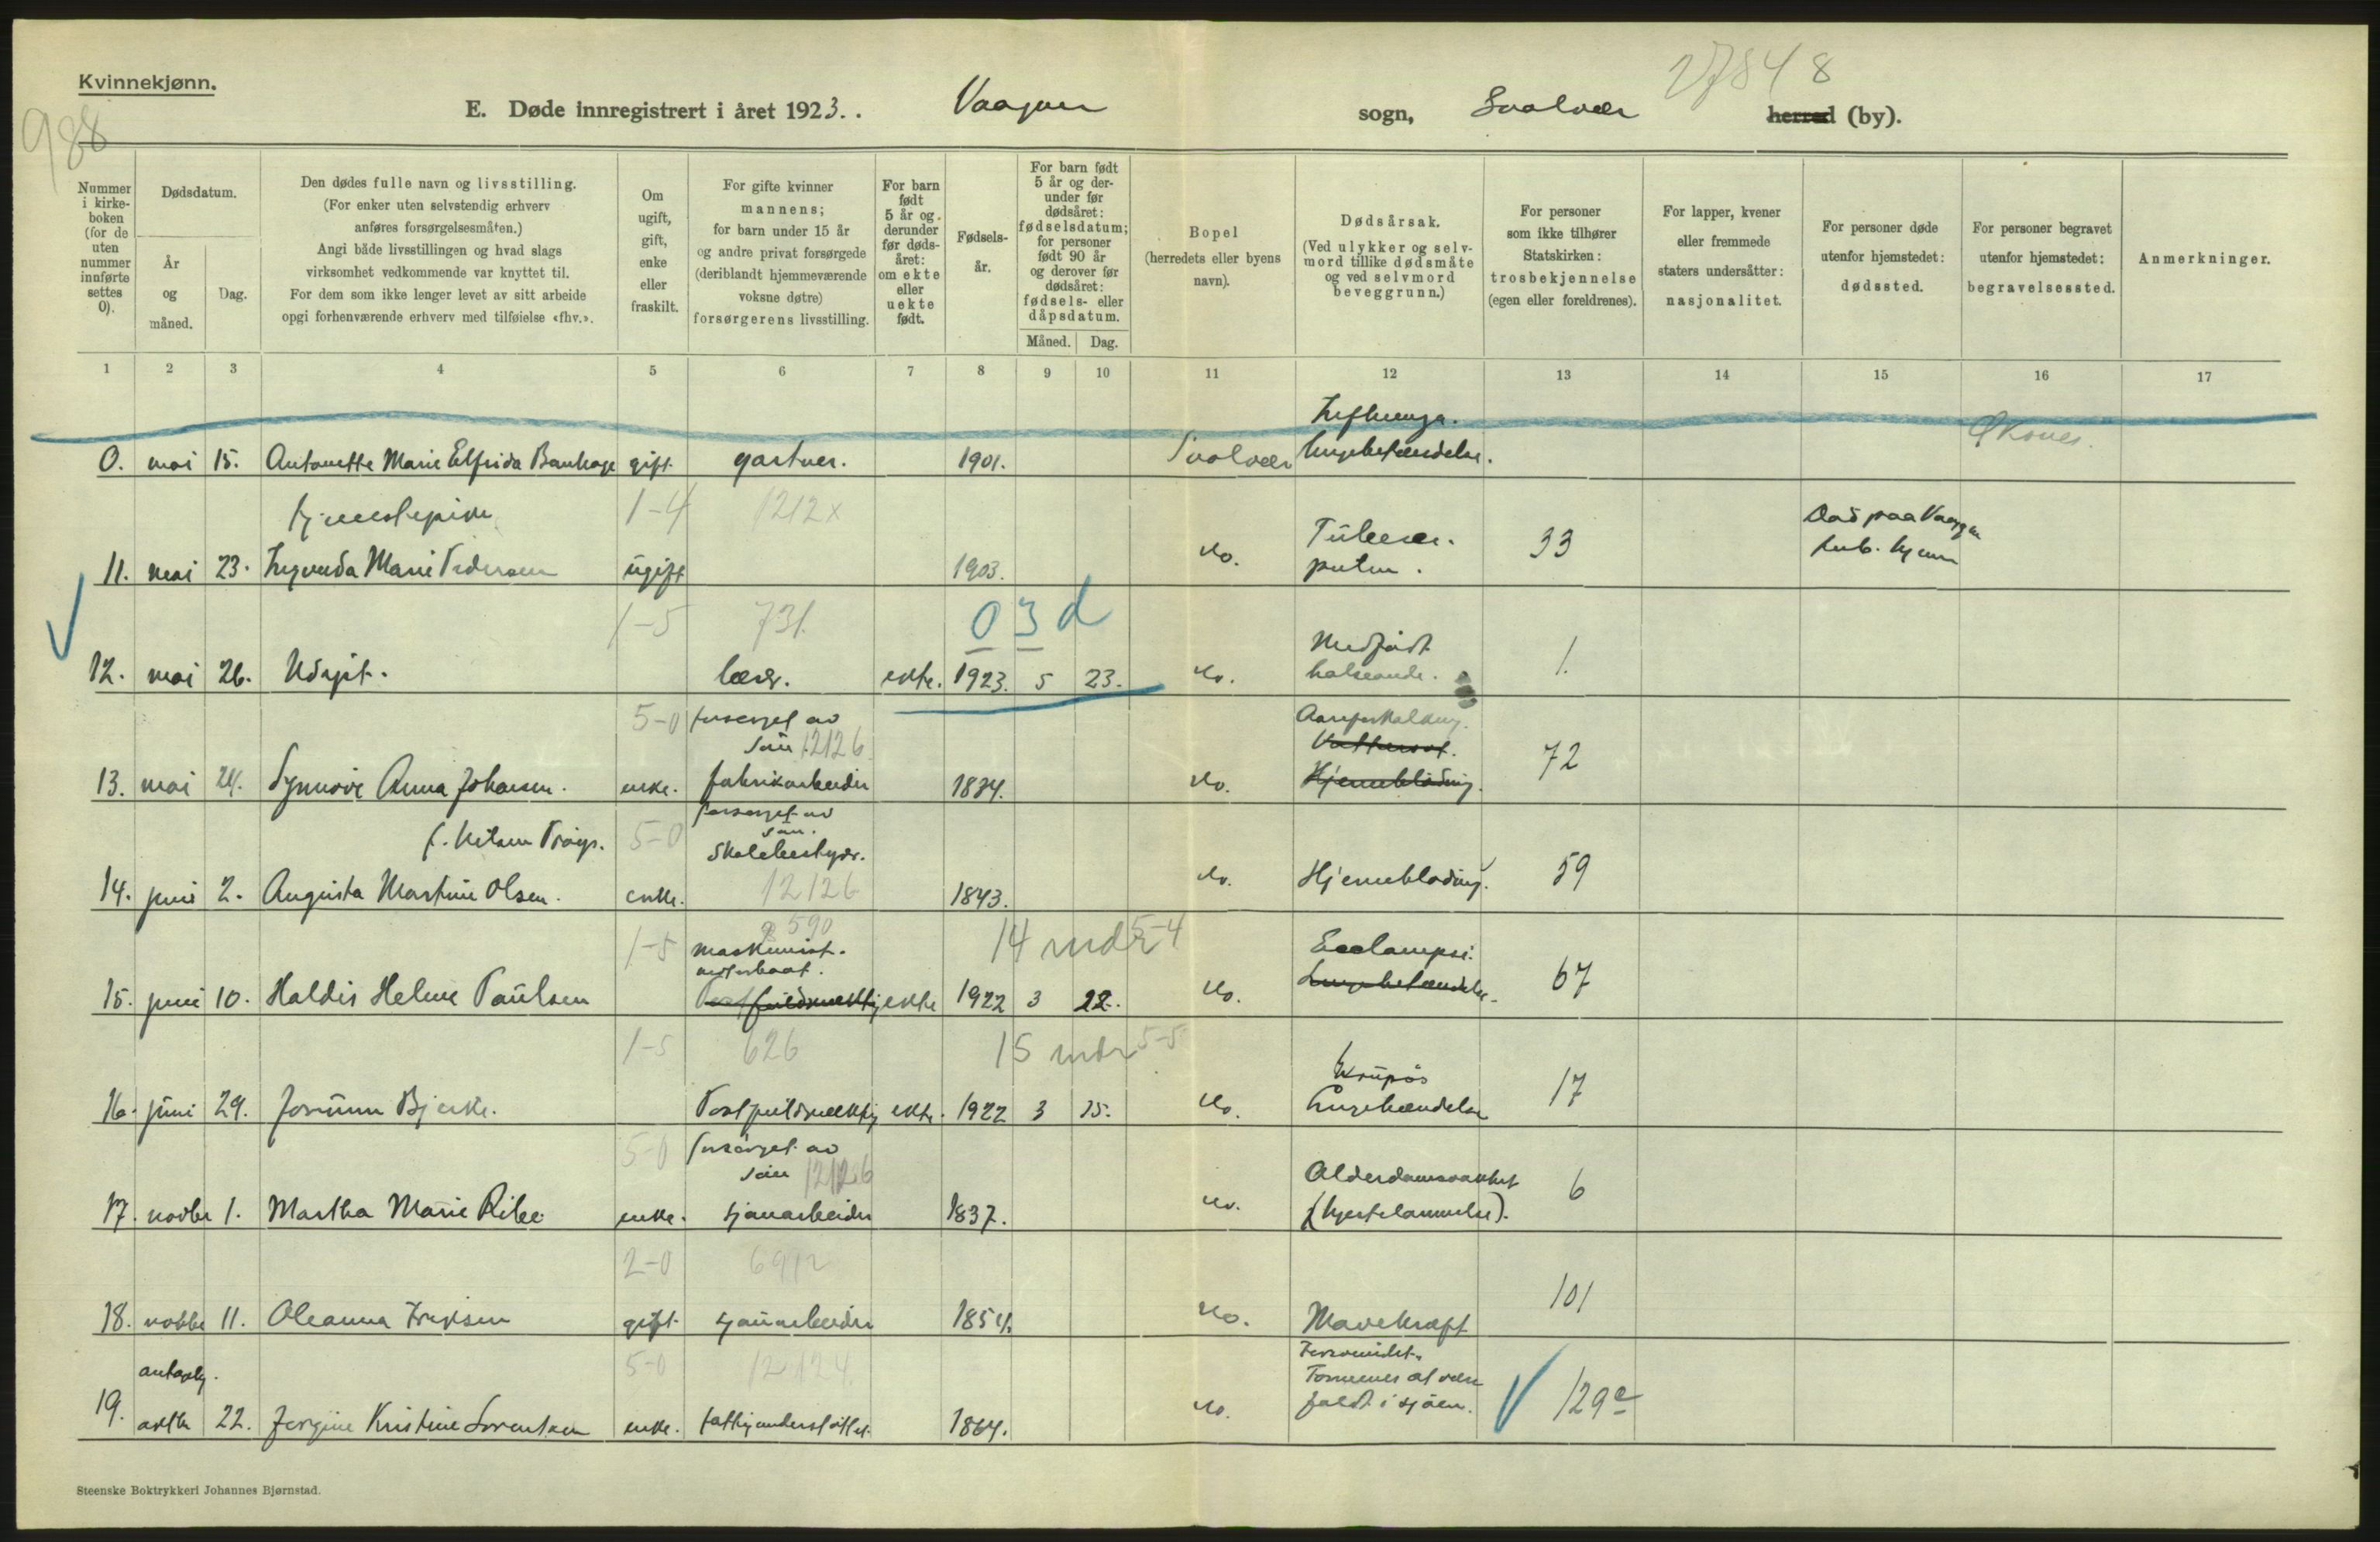 Kvinnekjønn.
27848
E. Døde innregistrert i året 1923. . Vaagan sogn, Svolvær herred (by).
988
Nummer i kirke-boken (for de uten nummer innførte settes 0).
Dødsdatum.
År og måned.
Dag.
Den dødes fulle navn og livsstilling.
(For enker uten selvstendig erhverv
anføres forsørgelsesmåten.)
Angi både livsstillingen og hvad slags
virksomhet vedkommende var knyttet til.
For dem som ikke lenger levet av sitt arbeide
opgi forhenværende erhverv med tilføielse «fhv.».
Om ugift, gift, enke eller fraskilt.
For gifte kvinner
mannens;
for barn under 15 år
og andre privat forsørgede
(deriblandt hjemmeværende
voksne døtre)
forsørgerens livsstilling.
For barn født 5 år og derunder før døds-året: om ekte eller uekte født.
Fødsels-år.
For barn født 5 år og der-under før dødsåret: fødselsdatum; for personer født 90 år og derover før dødsåret: fødsels- eller dåpsdatum.
Måned. Dag.
Bopel
(herredets eller byens
navn).
Dødsårsak.
(Ved ulykker og selv-
mord tillike dødsmåte
og ved selvmord
beveggrunn.)
For personer
som ikke tilhører
Statskirken:
trosbekjennelse
(egen eller foreldrenes).
For lapper, kvener
eller fremmede
staters undersåtter:
nasjonalitet.
For personer døde
utenfor hjemstedet:
dødssted.
For personer begravet
utenfor hjemstedet:
begravelsessted.
Anmerkninger.
1 2 3 4 5 6 7 8 9 10 11 12 13 14 15 16 17
Influenza.
0. mai 15. Antonette Marie Elfrida gift gartner. 1901. Svolvær lungebetændelse.
tjenestepike 1-4 1212x
Tuberc. 33
11. mai 23. Marie Pedersen ugift 1903. do. pulm.
1-5 731. 03d
Medfødt 1.
12. mai 26. Udøpt. ekte. 1923. 5 23. do.
5-0 forsørget av
søn 12126
13. mai 24. Synnøve Anna Johansen. enke. fabrikarbeider 1834. do. Hjerneblødning. 72
5-0 forsørget av
søn.
Skolebestyr.
14. juni 2. Augusta Martine Olsen. enke. 12126 1843. do. Hjerneblødning. 59
1-5 maskinist. 590 14 mdr 5-4 Eclampsi.
motorbaat.
15. juni 10. Haldis Helene Paulsen Postfuldmektig ekte 1922 3 22. do. Lungebetændelse. 67
1-5 626 15 mdr 5-5
Krupøs
16. juni 29. Jorunn Bjerke. Postfuldmektig ekte. 1922 3 15. do. 17
5-0 forsørget av
søn 12126
Alderdomssvakhet
17. novbr 1. Martha Marie enke. sjauarbeider 1837. do. (hjertelammelse). 6
2-0 6912
18. novbr 11. Oleanna gift sjauarbeider 1854. do. Mavekræft 101
antagelig. 5-0 12124.
Formenes at være
19. 22. Jergine Kristine Sørentsen enke. fattigunderstøttet 1864. do. faldt i sjøen. 129e
Steenske Boktrykkeri Johannes Bjørnstad.